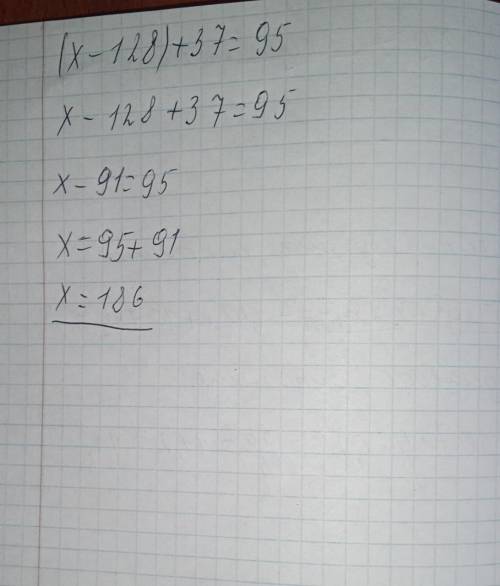 (x-128)+37=95
x-128+37=95
x-91=95
x=95+91
x=186